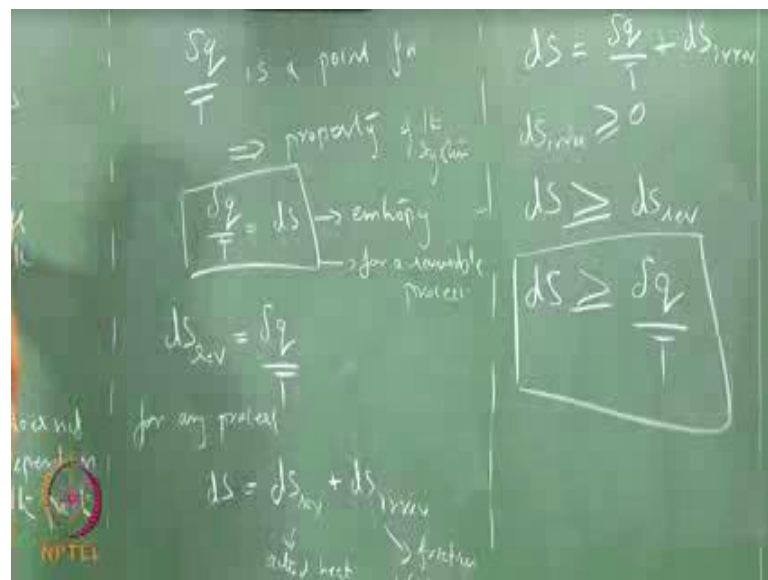 δq/T is a point fn
⇒ property of the system
δq/T = dS → entropy
→ for a reversible process
dS_rev = δq/T
for any process
dS = dS_rev + dS_irrev
added heat
friction
dS = δq/T + dS_irrev
dS_irrev ≥ 0
dS ≥ dS_rev
dS ≥ δq/T
does not
depend on
the path
NPTEL